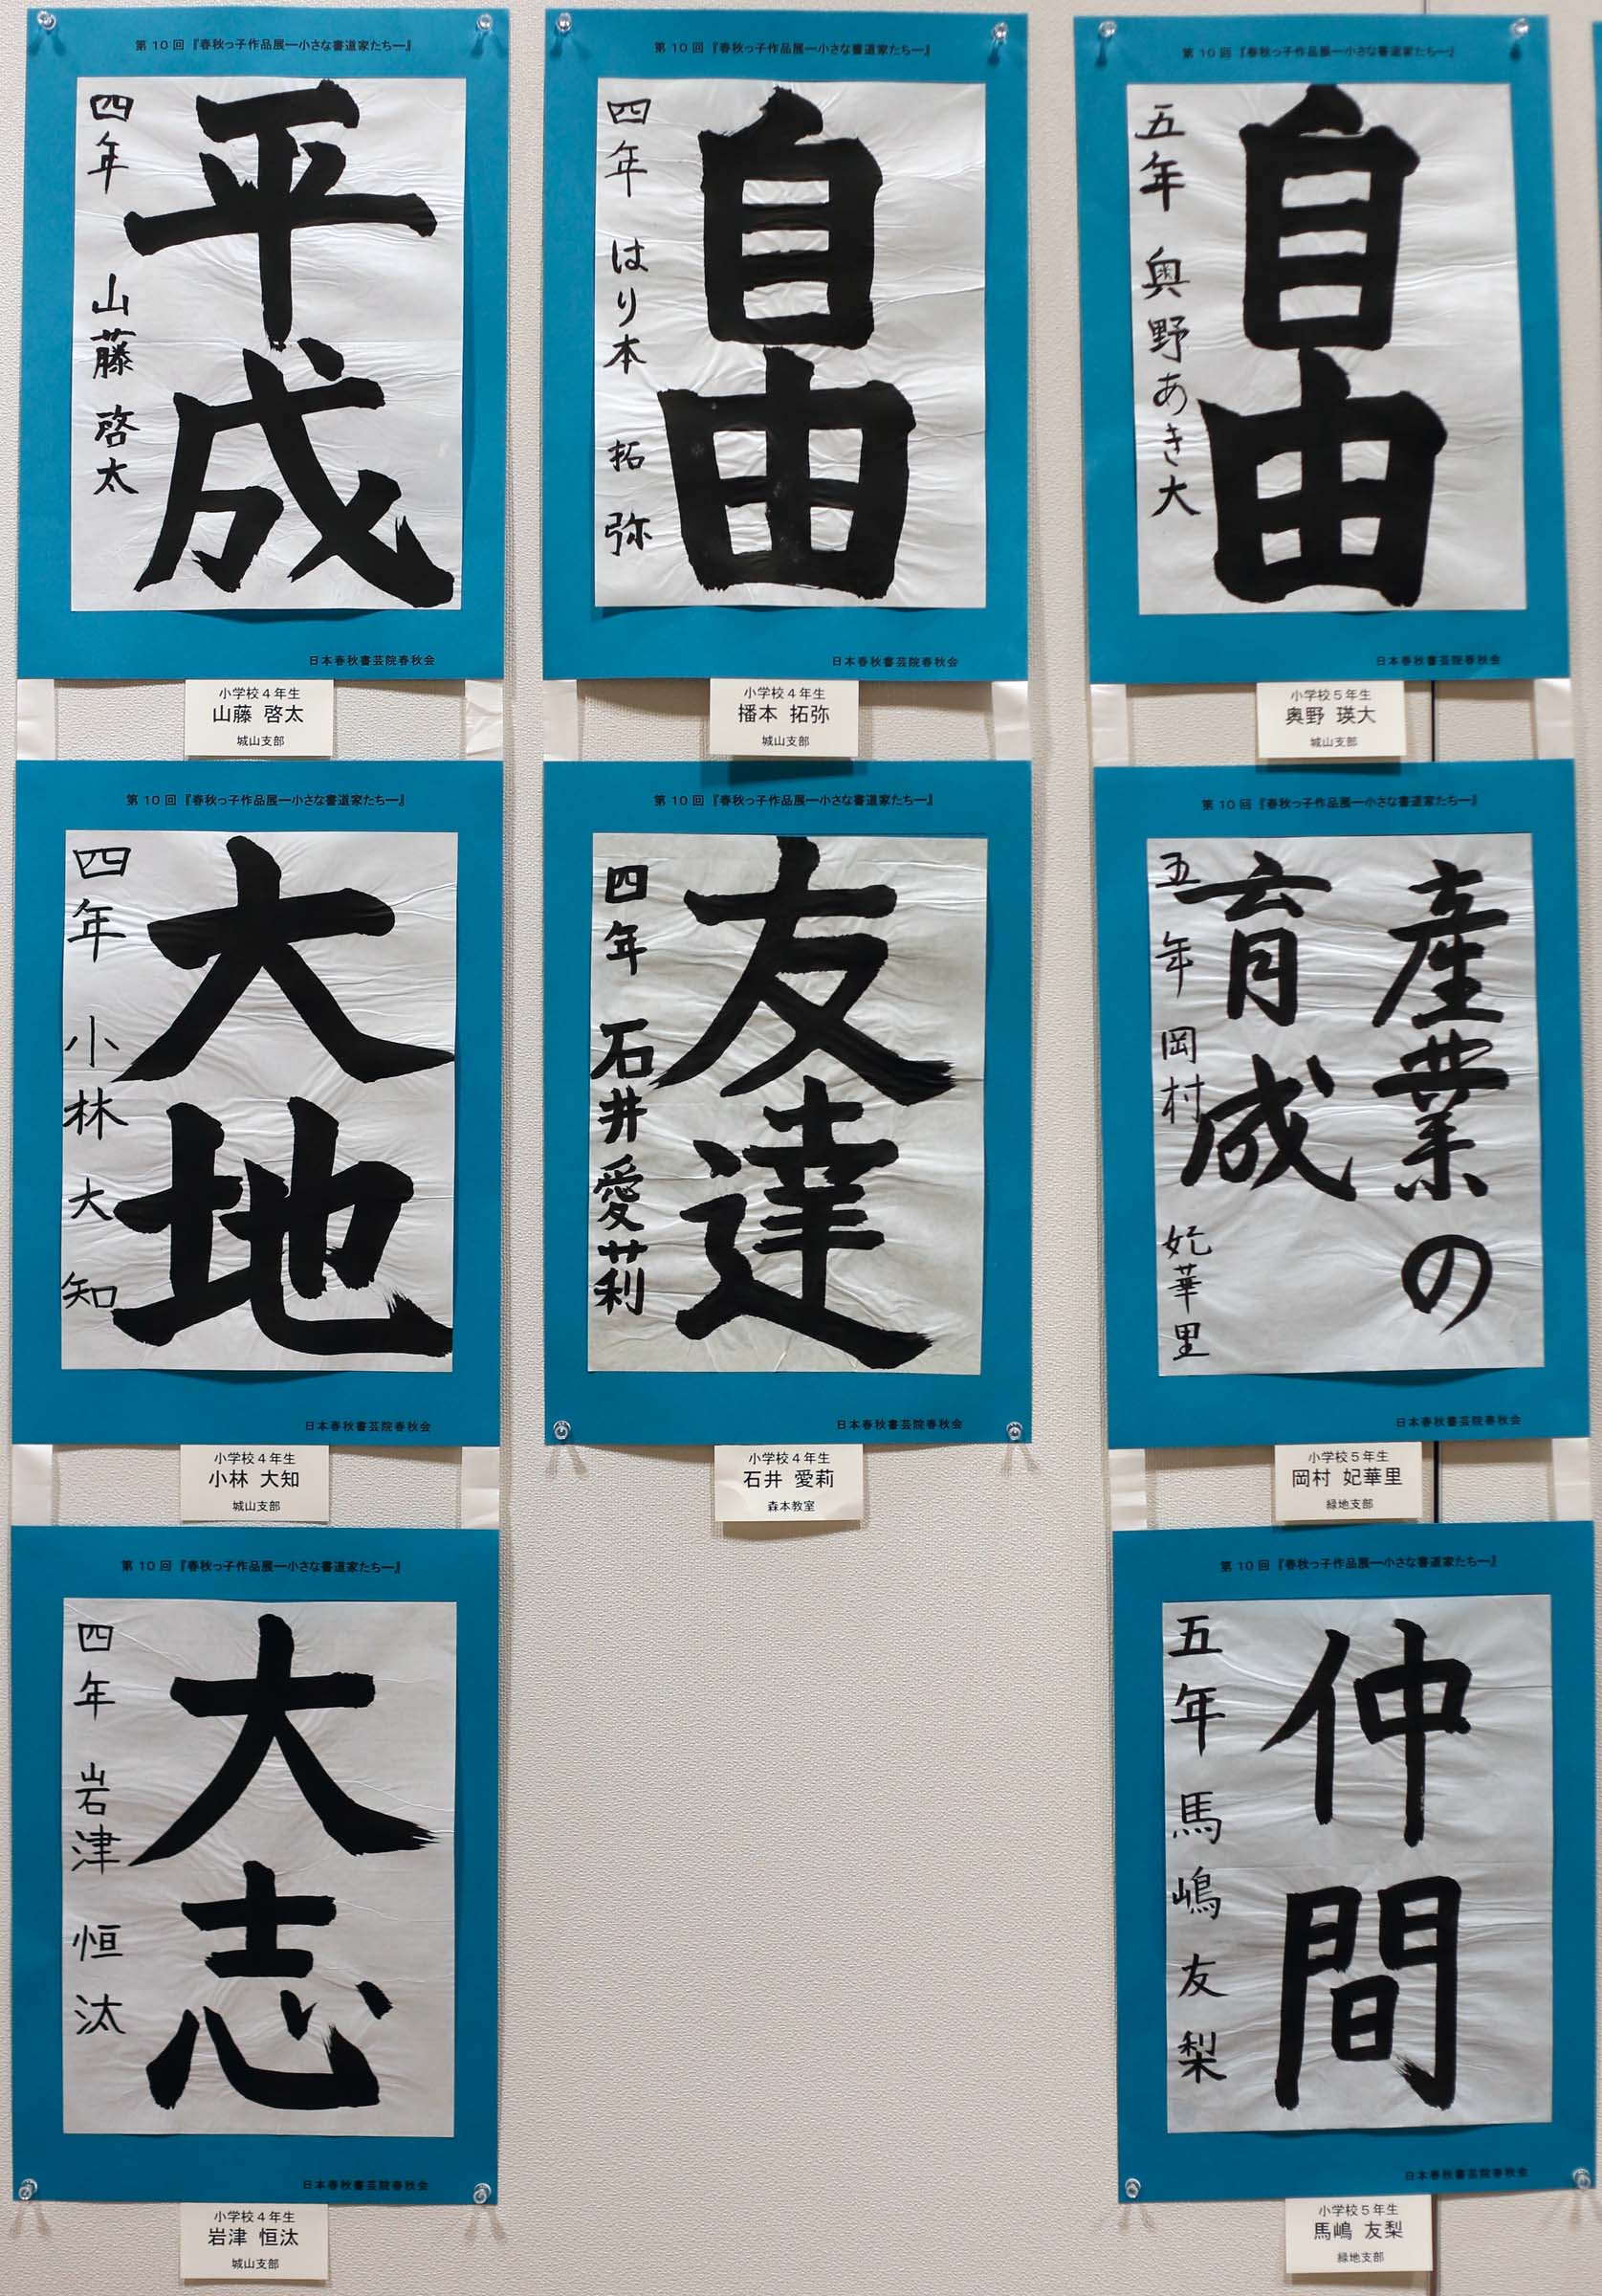 第10回『春秋っ子作品展―小さな書道家たち―』
平成
四年 山藤 啓太
日本春秋書芸院春秋会
小学校4年生
山藤 啓太
城山支部
第10回『春秋っ子作品展―小さな書道家たち―』
大地
四年 小林 大知
日本春秋書芸院春秋会
小学校4年生
小林 大知
城山支部
第10回『春秋っ子作品展―小さな書道家たち―』
大志
四年 岩津 恒汰
日本春秋書芸院春秋会
小学校4年生
岩津 恒汰
城山支部
第10回『春秋っ子作品展―小さな書道家たち―』
自由
四年 はり本 拓弥
日本春秋書芸院春秋会
小学校4年生
播本 拓弥
城山支部
第10回『春秋っ子作品展―小さな書道家たち―』
友達
四年 石井愛莉
日本春秋書芸院春秋会
小学校4年生
石井 愛莉
森本教室
第10回『春秋っ子作品展―小さな書道家たち―』
自由
五年 奥野あき大
日本春秋書芸院春秋会
小学校5年生
奥野 瑛大
城山支部
第10回『春秋っ子作品展―小さな書道家たち―』
産業の
育成
五年 岡村 妃華里
日本春秋書芸院春秋会
小学校5年生
岡村 妃華里
緑地支部
第10回『春秋っ子作品展―小さな書道家たち―』
仲間
五年 馬嶋友梨
日本春秋書芸院春秋会
小学校5年生
馬嶋 友梨
緑地支部